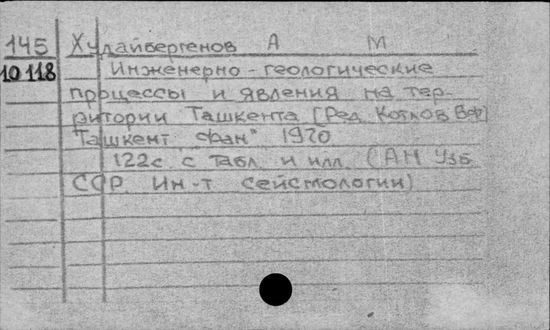 145 Худайбергенов А М
10118 Инженерно-геологические
процессы и явления на тер-
ритории Ташкента [Ред. Котлов В.Ф.]
Ташкент "Фан" 1970
122с. с табл. и илл. (АН Узб.
ССР. Ин-т сейсмологии)